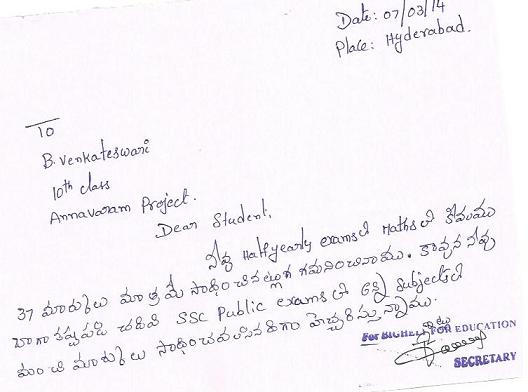 Date: 07/03/14
Place: Hyderabad.
To
B. Venkateswari
10th class
Annavaram Project.
Dear Student,
నీవు Halfyearly exams లో Maths లో కేవలము
37 మార్కులు మాత్రమే సాధించినట్లుగ గమనించినాము. కావున నీవు
బాగా కష్టపడి చదివి SSC Public exams లో అన్ని Subjects లో
మంచి మార్కులు సాధించవలసినదిగా హెచ్చరిస్తున్నాము.
For EDUCATION
SECRETARY